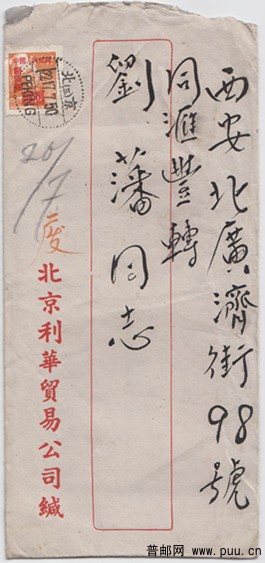 西安北廣濟街98號
同滙豐轉
劉藩同志
北京利華貿易公司緘
20/7
北京
22.7.50
普邮网 www.puu.cn